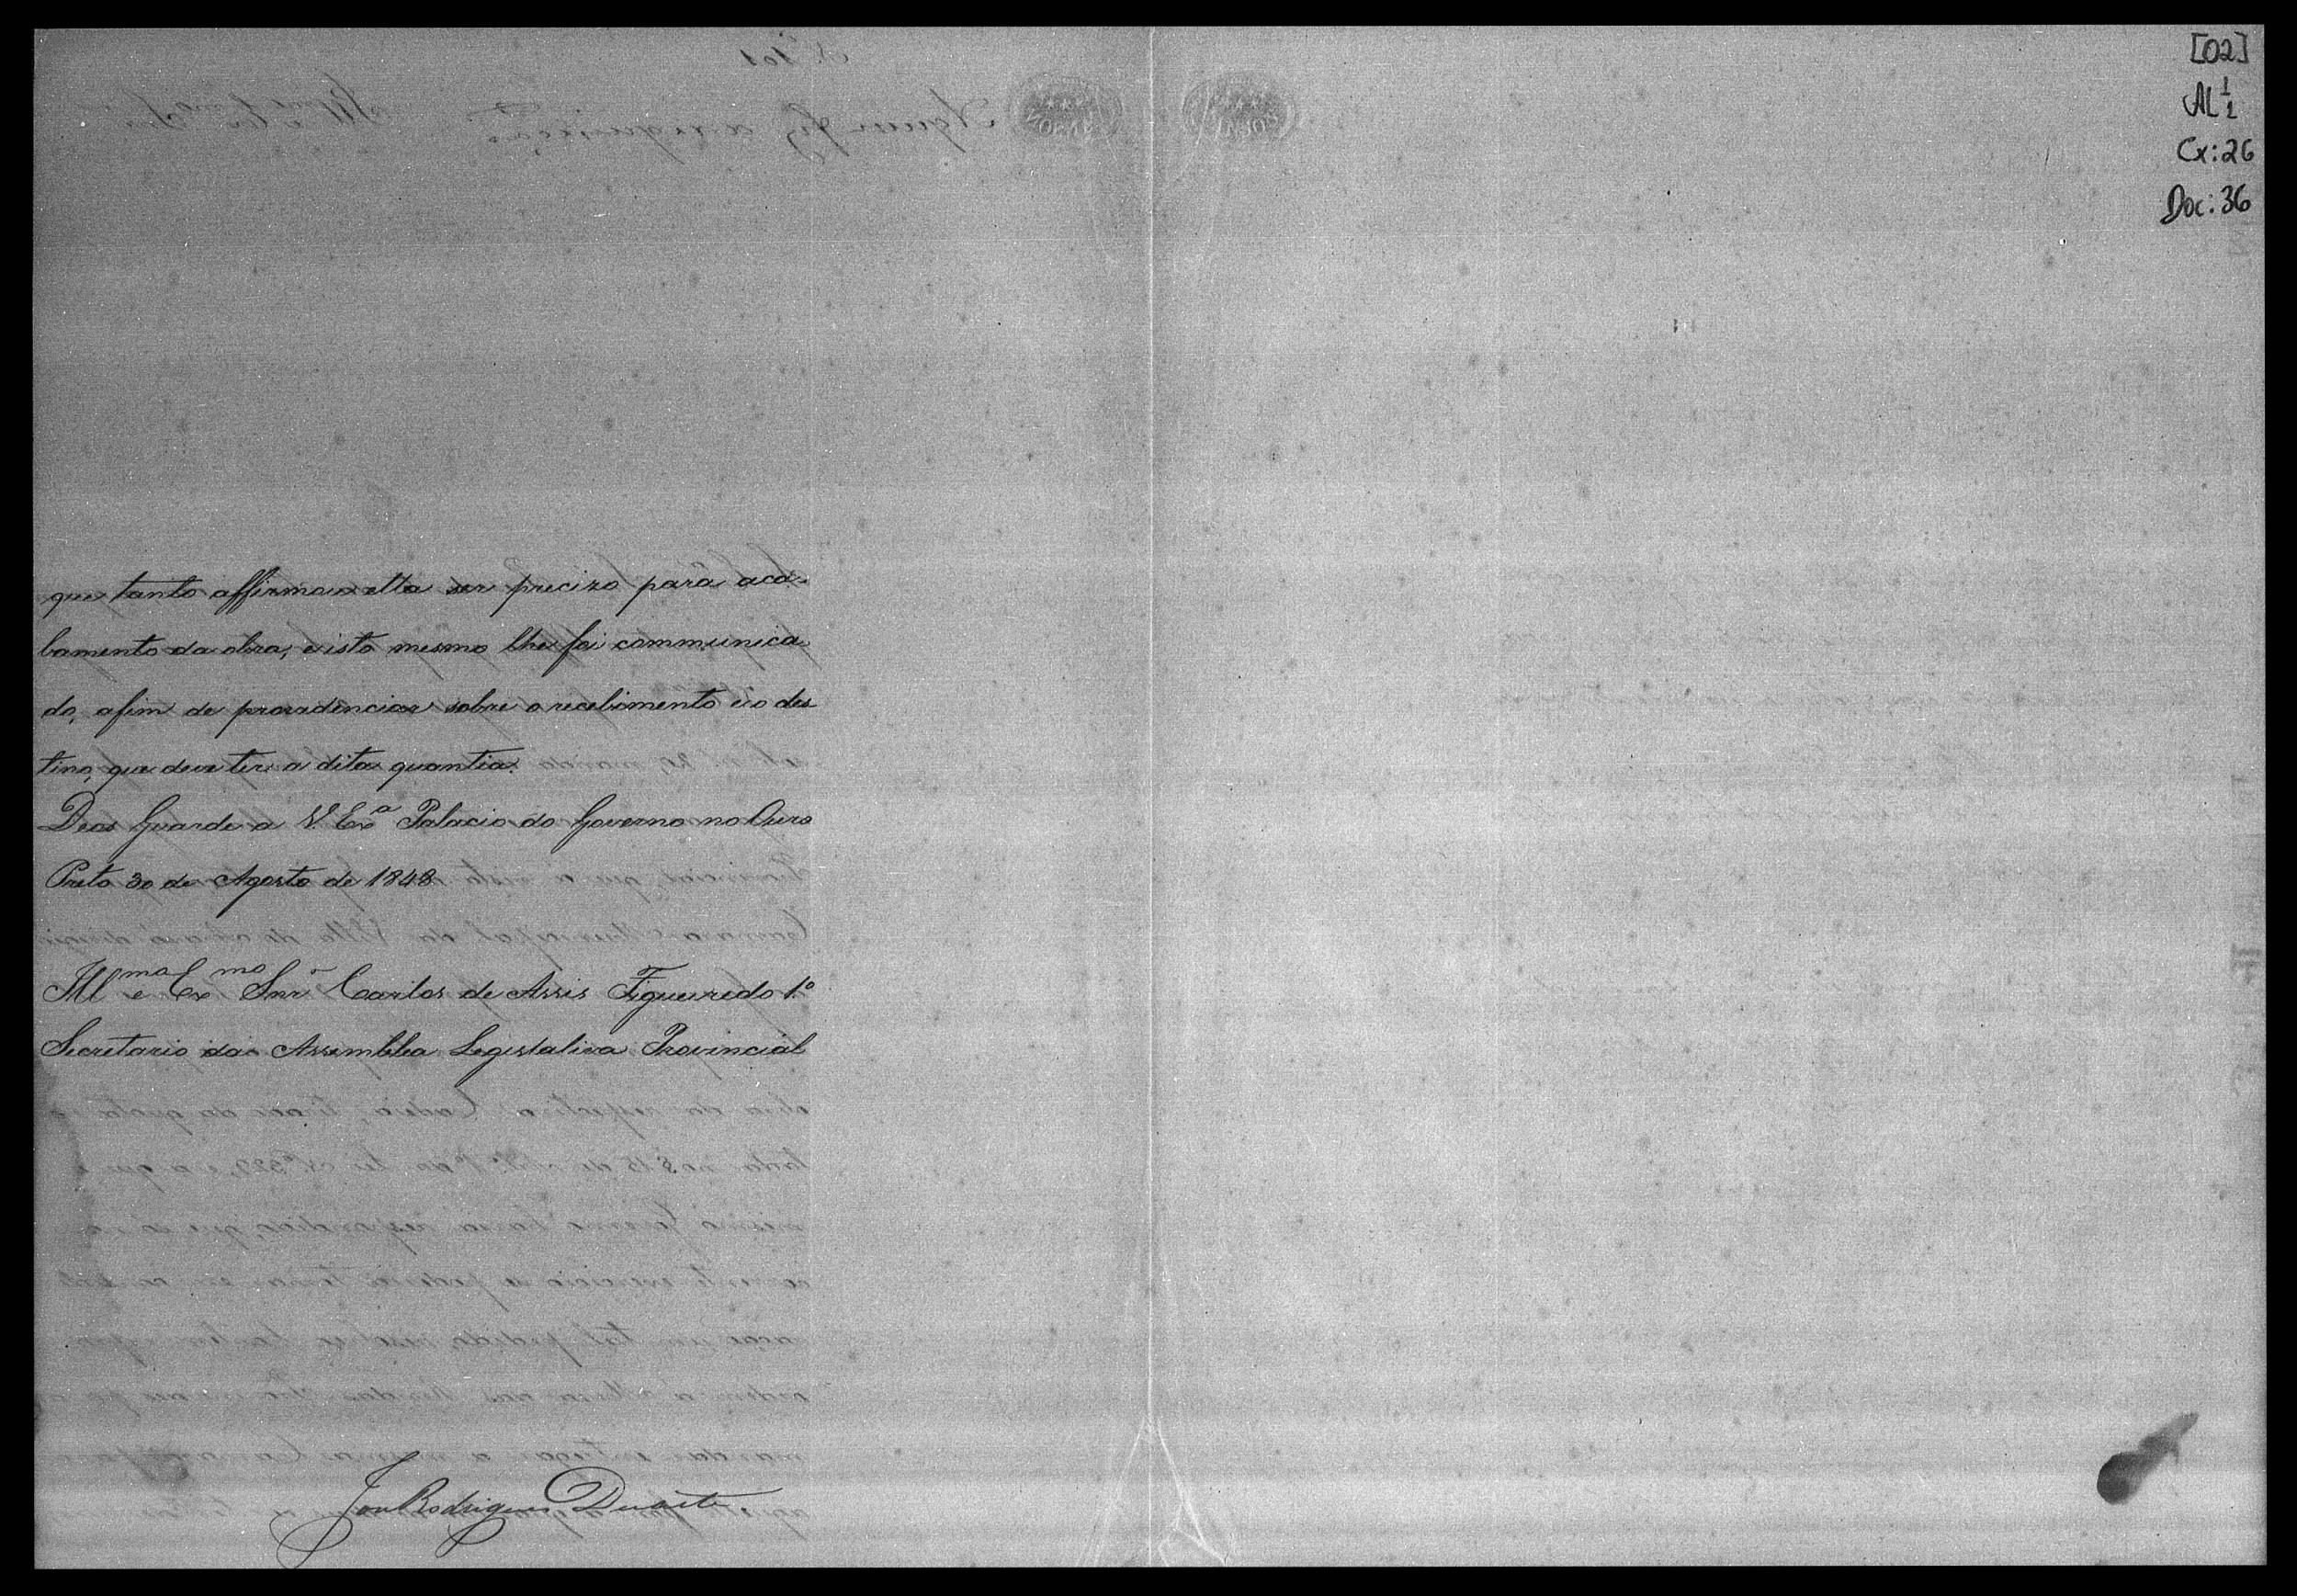 [02]
AL 1/2
Cx: 26
Doc: 36
que tanto affirmou ella ser precizo para aca-
bamento da obra, e isto mesmo lhe foi communica
do, afim de providenciar sobre o recebimento e o des
tino, que deve ter a dita quantia.
Deos Guarde a V. Exª Palacio do Governo no Ouro
Preto 30 de Agosto de 1848
Illmo e Exmo Snr Carlos de Assis Figueiredo 1.º
Secretario da Assemblea Legislativa Provincial
Rodrigues Duarte.